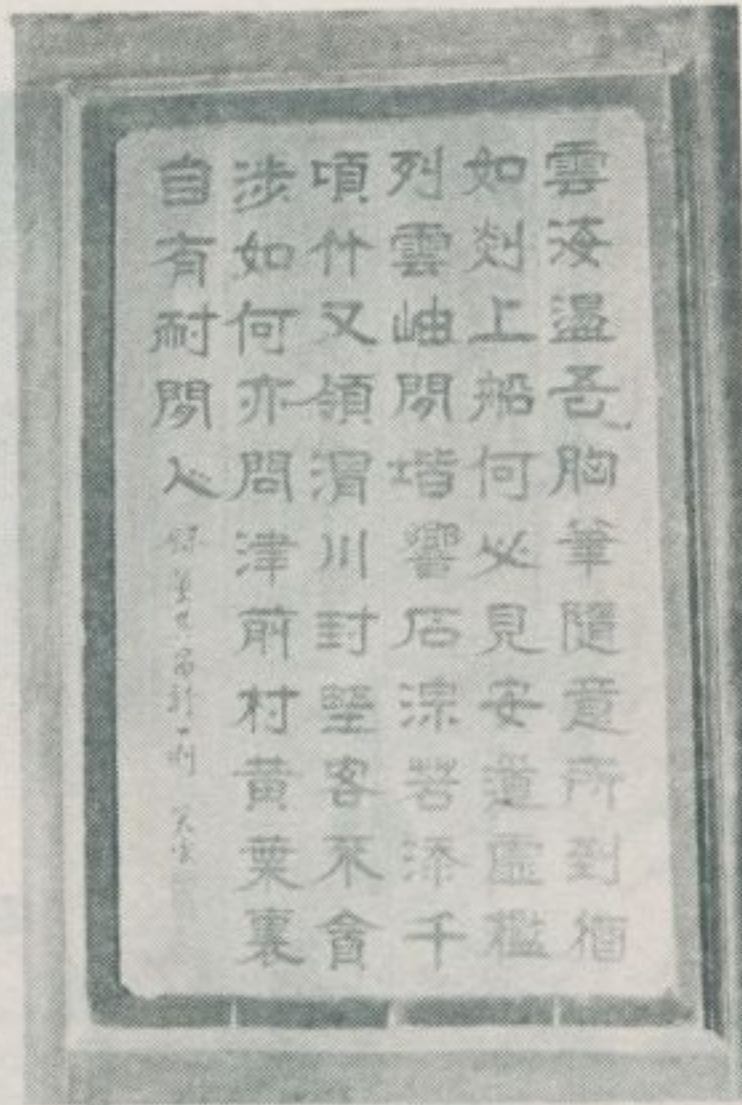 雲海盪吾胸筆隨意所到猶
如剡上船何必見安道虛檻
列雲岫閒堦響石淙若添千
頃竹又領渭川封墅客不會
涉如何亦問津前村黃葉裏
自有耐閒人